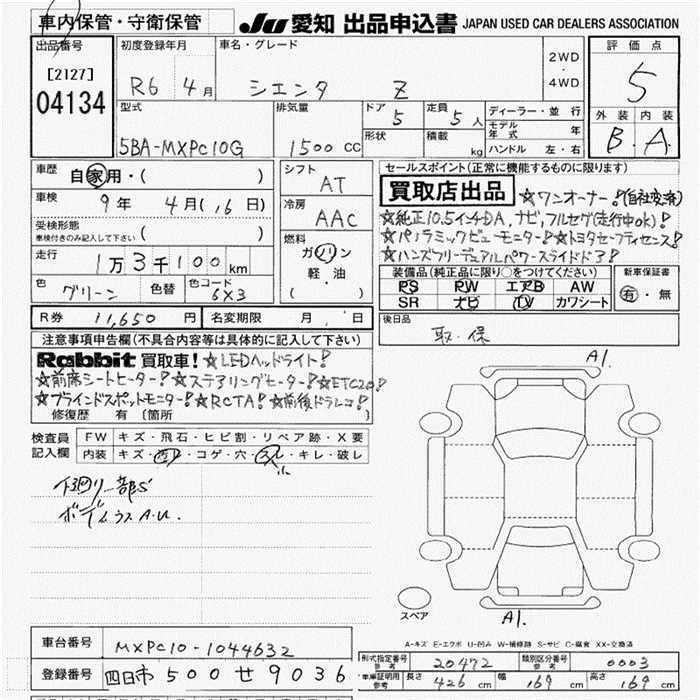 車内保管・守衛保管
JU 愛知 出品申込書 JAPAN USED CAR DEALERS ASSOCIATION
出品番号
[2127]
04134
初度登録年月
R6 4月
車名・グレード
シエンタ Z
2WD
・
4WD
評価点
5
型式
5BA-MXPC10G
排気量
1500 CC
ドア
5
定員
5人
形状
積載
kg
ディーラー・並行
モデル年式 年
ハンドル 左・右
外装 内装
B. A.
車歴
自家用・( )
車検
9年 4月(,6日)
受検形態
車検付きのみ記入して下さい ( )
走行
1万3千100km
色
グリーン
色替
色コード
6X3
シフト
AT
冷房
AAC
燃料
ガソリン
軽油
( )
セールスポイント(正常に機能するものに限ります)
買取店出品 ☆ワンオーナー!(自社査済)
☆純正10.5インチDA,ナビ,フルセグ(走行中OK)!
☆パノラミックビューモニター!☆トヨタセーフティセンス!
☆ハンズフリーデュアルパワースライドドア!
装備品(純正品に限り○をつけてください)
PS PW エアB AW
SR ナビ TV カワシート
新車保証書
有・無
R券 11,650円
名変期限 月 日
後日品
取・保
注意事項申告欄(不具合内容等は具体的に記入して下さい)
Rabbit 買取車! ☆LEDヘッドライト!
☆前席シートヒーター!☆ステアリングヒーター!☆ETC2.0!
☆ブラインドスポットモニター!☆RCTA!☆前後ドラレコ!
修復歴 有 (箇所 )
検査員
記入欄
FW キズ・飛石・ヒビ割・リペア跡・X要
内装 キズ・凹レ・コゲ・穴・スレ・キレ・破レ
下廻り一部S
ボディウスA.U.
A1.
A1.
スペア
A-キズ E-エクボ U-凹み W-補修跡 S-サビ C-腐食 XX-交換済
車台番号 MXPC10-1044632
登録番号 四日市500せ9036
形式指定番号 参考 20472 類別区分番号 参考 0003
車庫証明用 参考 長さ 426cm 幅 169cm 高さ 169cm